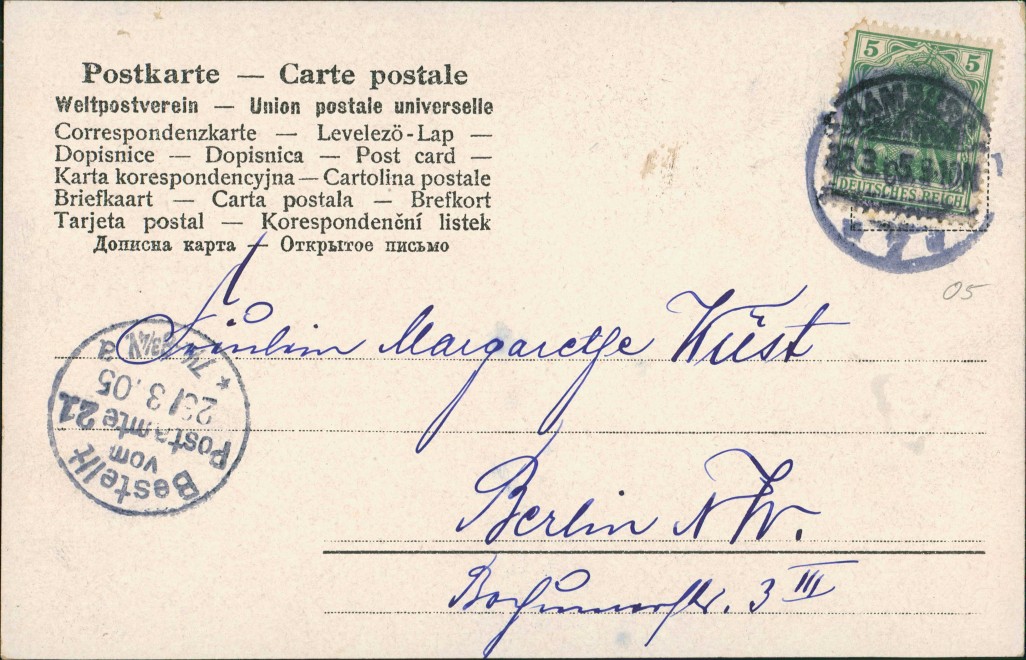 Postkarte — Carte postale
Weltpostverein — Union postale universelle
Correspondenzkarte — Levelezö-Lap —
Dopisnice — Dopisnica — Post card —
Karta korespondencyjna — Cartolina postale
Briefkaart — Carta postala — Brefkort
Tarjeta postal — Korespondenční listek
Дописна карта — Открытое письмо
5 5
HAMBURG
22.3.05
DEUTSCHES REICH
05
Fräulein Margarethe Wüst
Berlin N.W.
Bochumerstr. 3 III
Bestellt
vom
Postamte 21
23/3.05